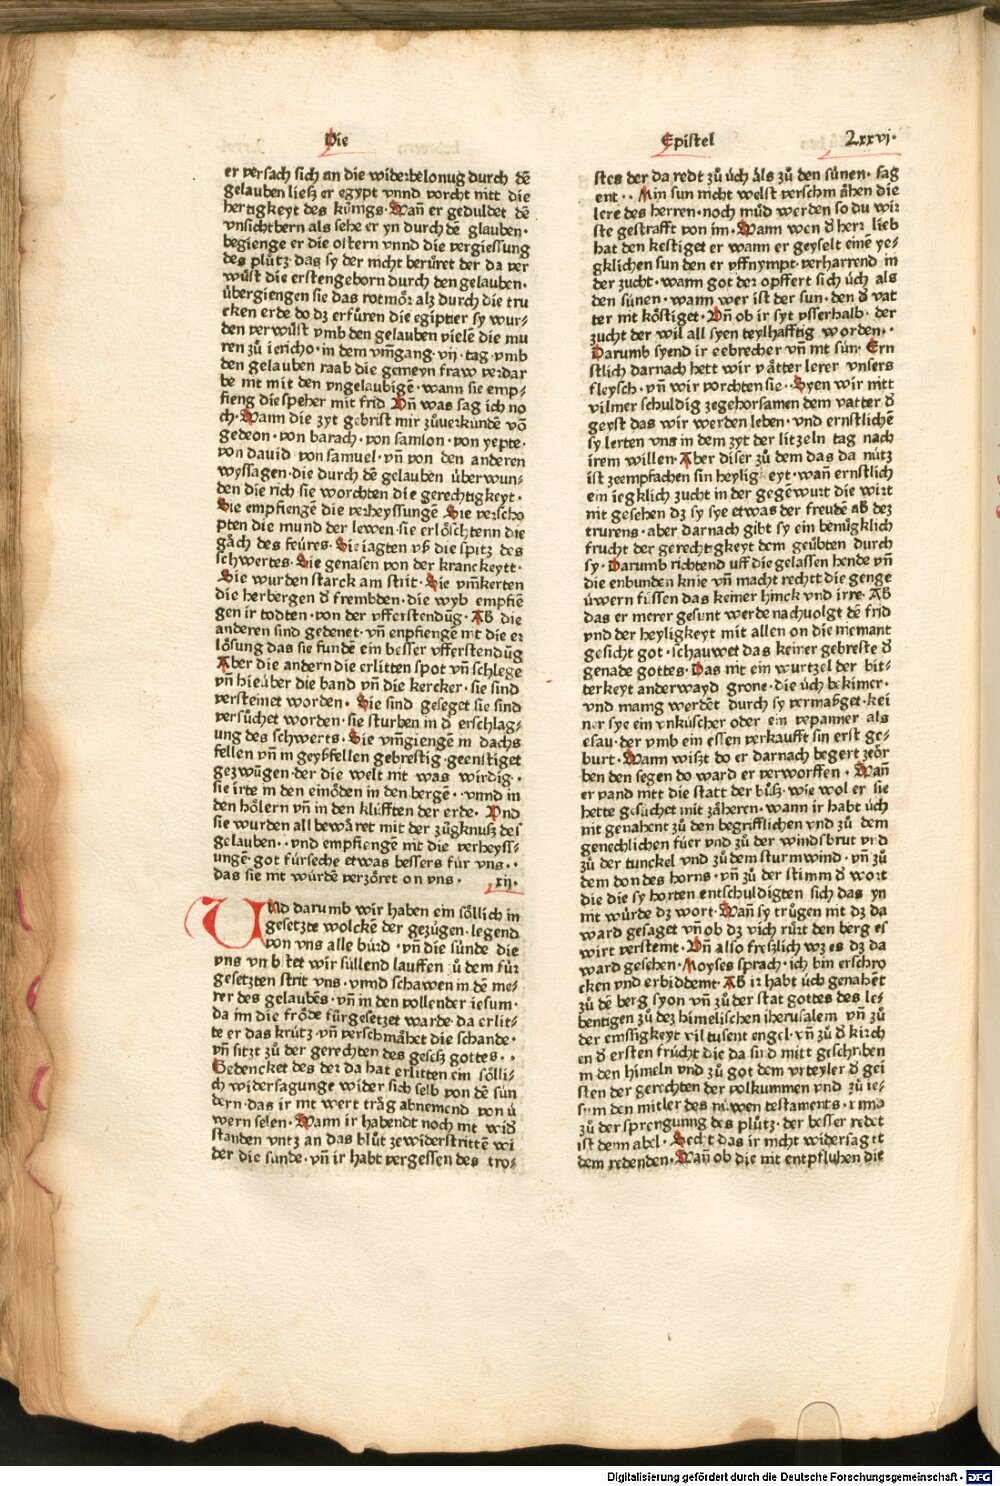 Die
Epistel
Lxxvj·
er versach sich an die widerbelonug durch dē
gelauben ließ er egypt vnnd vorcht nitt die
hertigkeyt des künigs· Wañ er geduldet dē
vnsichtbern als sehe er yn durch dē glauben·
begienge er die ostern vnnd die vergiessung
des plůtz· das sy der nicht berůret der da ver
wůst die erstengeborn durch den gelauben·
übergiengen sie das rotmör alz durch die tru
cken erde do dz erfüren die egiptier sy wur⸗
den verwůst vmb den gelauben vielē die mu
ren zů iericho· in dem vm̄gang· vij· tag vmb
den gelauben raab die gemeyn fraw verdar
be nit mit den vngelaubigē· wann sie emp⸗
fieng die speher mit frid Vñ was sag ich no
ch· Wann die zyt gebrist mir zůverkündē vō
gedeon· von barach· von samson· von yepte·
von dauid von samuel· vñ von den anderen
wyssagen· die durch dē gelauben überwun⸗
den die rich sie worchten die gerechtigkeyt·
Sie empfiengē die verheyssungē Sie verscho
pten die mund der lewen· sie erlöschtenn die
gäch des feüres· Sie iagten vß die spitz des
schwertes· Sie genasen von der kranckeytt·
Sie wurden starck am strit· Sie vm̄kerten
die herbergen d̄ frembden· die wyb empfiē
gen ir todten· von der vfferstendūg· Aß die
anderen sind gedenet· vñ enpfiengē nit die er
lösung das sie fundē ein besser vfferstendūg
Aber die andern die erlitten spot vñ schlege
vñ hieüber die band vñ die kercker· sie sind
versteinet worden· Sie sind geseget sie sind
versůchet worden· sie sturben in d̄ erschlag⸗
ung des schwerts· Sie vm̄giengē in dachs
fellen vñ in geyßfellen gebrestig· geenstiget
gezwūgen· der die welt nit was wirdig··
sie irte in den einöden in den bergē·· vnnd in
den hölern vñ in den klüfften der erde· Vnd
sie wurden all bewäret mit der zůgknuß des
gelauben·· vnd empfiengē nit die verheyss⸗
ungē· got fürsehe etwas bessers für vns··
das sie nit würdē verzöret on vns· xij·
Und darumb wir haben ein söllich in
gesetzte wolckē der gezügen· legend
von vns alle bürd· vñ die sünde die
vns süllend lauffen zů dem für
gesetzten strit vns· vnnd schawen in dē me⸗
rer des gelaubēs· vñ in den vollender iesum·
da im die fröde fürgesetzet warde· da erlit⸗
te er das krütz· vñ verschmähet die schande·
vñ sitzt zů der gerechten des geseß gottes··
Gedencket des der da hat erlitten ein sölli⸗
ch widersagunge wider sich selb von dē sün
dern· das ir nit wert träg abnemend von ü
wern selen· Wann ir habendt noch nit wid̄
standen vntz an das blůt zewiderstrittē wi
der die sünde· vñ ir habt vergessen des tro⸗
stes der da redt zů üch als zů den sünen· sag
ent·· Min sun nicht welst verschmähen die
lere des herren· noch müd werden so du wir
ste gestrafft von im· Wann wen d̄ herr lieb
hat den kestiget er wann er geyselt einē ye⸗
gklichen sun den er vffnympt· verharrend in
der zucht· wann got der opffert sich üch als
den sünen· wann wer ist der sun· den d̄ vat
ter nit köstiget· Vñ ob ir syt vsserhalb· der
zucht der wil all syen teylhafftig worden··
Darumb syend ir eebrecher vñ nit sün· Ern
stlich darnach hett wir vätter lerer vnsers
fleysch· vñ wir vorchten sie·· Syen wir nitt
vilmer schuldig zegehorsamen dem vatter d̄
geyst das wir werden leben· vnd ernstlichē
sy lerten vns in dem zyt der litzeln tag nach
irem willen· Aber diser zů dem das da nütz
ist zeempfachen sin heyligkeyt· wañ ernstlich
ein iegklich zucht in der gegēwurt die wirt
nit gesehen dz sy sye etwas der freudē aß dez
trurens· aber darnach gibt sy ein benůgklich
frucht der gerechtigkeyt dem geübten durch
sy· Darumb richtend uff die gelassen hende vñ
die enbunden knie vñ macht rechtt die genge
üwern füssen das keiner hinck vnd irre· Aß
das er merer gesunt werde nachvolgt dē frid
vnd der heyligkeyt mit allen on die niemant
gesicht got· schauwet das keiner gebreste d̄
genade gottes· Das nit ein wurtzel der bit⸗
terkeyt anderwayd grone· die üch bekimer·
vnd manig werdēt durch sy vermaßget· kei
ner sye ein vnküscher oder ein vepanner als
esau· der vmb ein essen verkaufft sin erst ge⸗
burt· Wann wißt do er darnach begert zeör
ben den segen do ward er verworffen· Wañ
er vand nitt die statt der bůß· wie wol er sie
hette gesůchet mit zäheren· wann ir habt üch
nit genahent zů den begrifflichen vnd zů dem
genechlichen füer vnd zů der windsbrut vnd
zů der tunckel vnd zů dem sturmwind· vñ zů
dem don des horns· vñ zů der stimm d̄ wort
die die sy horten entschuldigten sich das yn
nit würde dz wort· Wañ sy trůgen nit dz da
ward gesaget vñ ob dz vich růrt den berg es
wirt verstemt· Vñ also freßlich wz es dz da
ward gesehen· Moyses sprach· ich bin erschro
cken vnd erbidemt· Aß ir habt üch genahēt
zů dē berg syon vñ zů der stat gottes des le⸗
bentigen zů dez himelischen iherusalem vñ zů
der emssigkeyt vil tusent engel· vñ zů d̄ kirch
en d̄ ersten frücht die da sind mitt geschriben
in den himeln vnd zů got dem vrteyler d̄ gei
sten der gerechten der volkummen vnd zů ie⸗
sum den mitler des nüwen testaments·
zů der sprengunng des plůtz· der besser redet
ist denn abel· Secht das ir nicht widersaget
dem redenden· Wañ ob die nit entpfluhen die
Digitalisierung gefördert durch die Deutsche Forschungsgemeinschaft - DFG